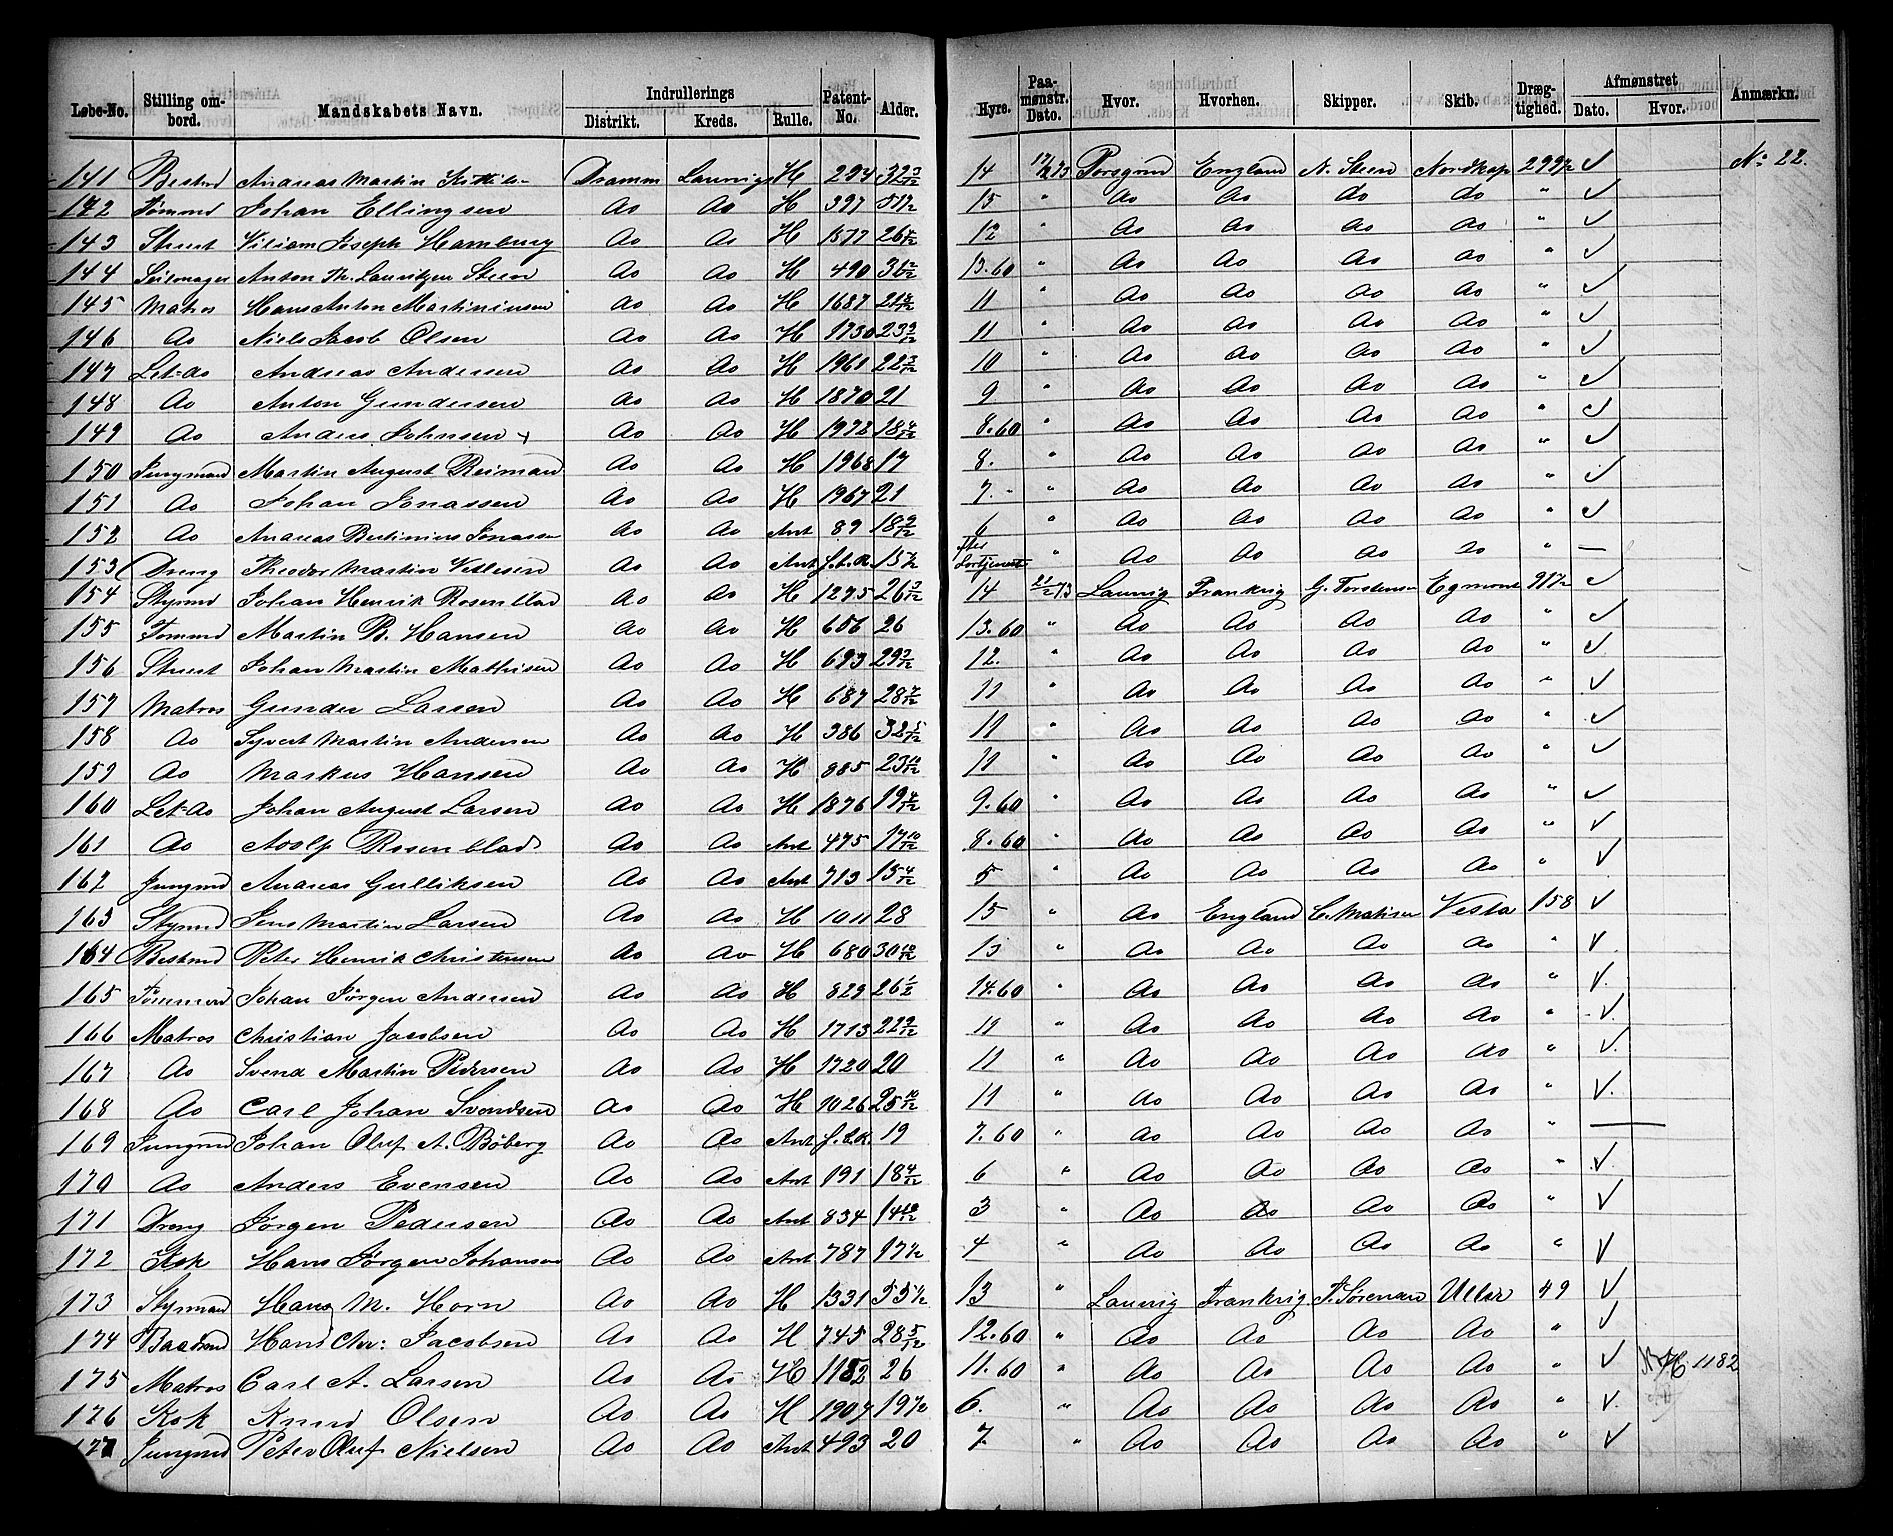 Løbe-No. Stilling ombord. Mandskabets Navn. Indrullerings Distrikt. Kreds. Rulle. Patent-No. Alder. Hyre. Paamønstr. Dato. Hvor. Hvorhen. Skipper. Skib. Drægtighed. Afmønstret Dato. Hvor. Anmærkn.
141 Bestmd Andreas Martin Dramm Laurvig H 294 32 3/12 14 17/2 73 Porsgrnd England N. Steen Nordkap 299 1/2 No 22.
142 Tømmd Johan Ellingsen do do H 397 51 1/2 15 " do do do do "
143 Stuert Viliam Joseph Hamburg do do H 1577 12 " do do do do "
144 Seilmager Anton Th. Lauritzen Steen do do H 490 36 2/12 13.60 " do do do do "
145 Matros Hans Anton Martiniusen do do H 1687 11 " do do do do "
146 do Niels Jacob Olsen do do H 1730 23 9/12 11 " do do do do "
147 Let-do Andreas Andersen do do H 1961 22 3/12 10 " do do do do "
148 do Anton Gundersen do do H 1870 21 9 " do do do do "
149 do Anders Johnsen + do do H 1972 18 4/12 8.60 " do do do do "
150 Jungmand Martin August Reimand do do H 1968 17 8. " do do do do "
151 do Johan Jonassen do do H 1967 21 7. " do do do do "
152 do Andreas Bertinius Jonassen do do Ant 89 18 9/12 6 " do do do do "
153 Dreng Theodor Martin Vetlesen do do Ant f.t.R. 15 1/2 efter Fortjeneste " do do do do " —
154 Styrmd Johan Henrik Rosenblad do do H 1275 26 3/12 14 21/2 73 Laurvig Frankrig G. Torstensen Egmont 97 1/2
155 Tømmd Martin B. Hansen do do H 656 26 13.60 " do do do do "
156 Stuert Johan Martin Mathisen do do H 693 29 3/12 12. " do do do do "
157 Matros Gunder Larsen do do H 687 28 7/12 11 " do do do do "
158 do Syvert Martin Andersen do do H 386 32 5/12 11 " do do do do "
159 do Markus Hansen do do H 885 23 10/12 11 " do do do do "
160 Let-do Johan August Larsen do do H 1876 19 4/12 9.60 " do do do do "
161 do Adolf Rosenblad do do Ant 475 17 10/12 8.60 " do do do do "
162 Jungmd Andreas Gulliksen do do Ant 713 15 4/12 5 " do do do do "
163 Styrmd Jens Martin Larsen do do H 1011 28 15 " do England C. Matisen Vesta 158
164 Bestmd Peter Henrik Christensen do do H 680 30 10/12 15 " do do do do "
165 Tømmermd Johan Jørgen Andersen do do H 829 26 1/2 14.60 " do do do do "
166 Matros Christian Jacobsen do do H 1713 22 9/12 11 " do do do do "
167 do Svend Martin Pedersen do do H 1720 20 11 " do do do do "
168 do Carl Johan Svendsen do do H 1026 25 10/12 11 " do do do do "
169 Jungmd Johan Oluf A. Boberg do do Ant f.t.R. 19 7.60 " do do do do " —
170 do Anders Evensen do do Ant 191 18 4/12 6 " do do do do "
171 Dreng Jørgen Pedersen do do Ant 834 14 10/12 3 " do do do do "
172 Kok Hans Jørgen Johansen do do Ant 787 17 1/2 4 " do do do do "
173 Styrmand Hans M. Horn do do H 1331 55 1/2 13 " Laurvig Frankrig Sørensen 49
174 Baadsmd Hans Chr: Jacobsen do do H 745 28 5/12 12.60 " do do do do "
175 Matros Carl A. Larsen do do H 1182 26 11.60 " do do do do " H 1182
176 Kok Knud Olsen do do H 1907 19 1/2 6. " do do do do "
177 Jungmd Peter Oluf Nielsen do do Ant 493 20 7 " do do do do "